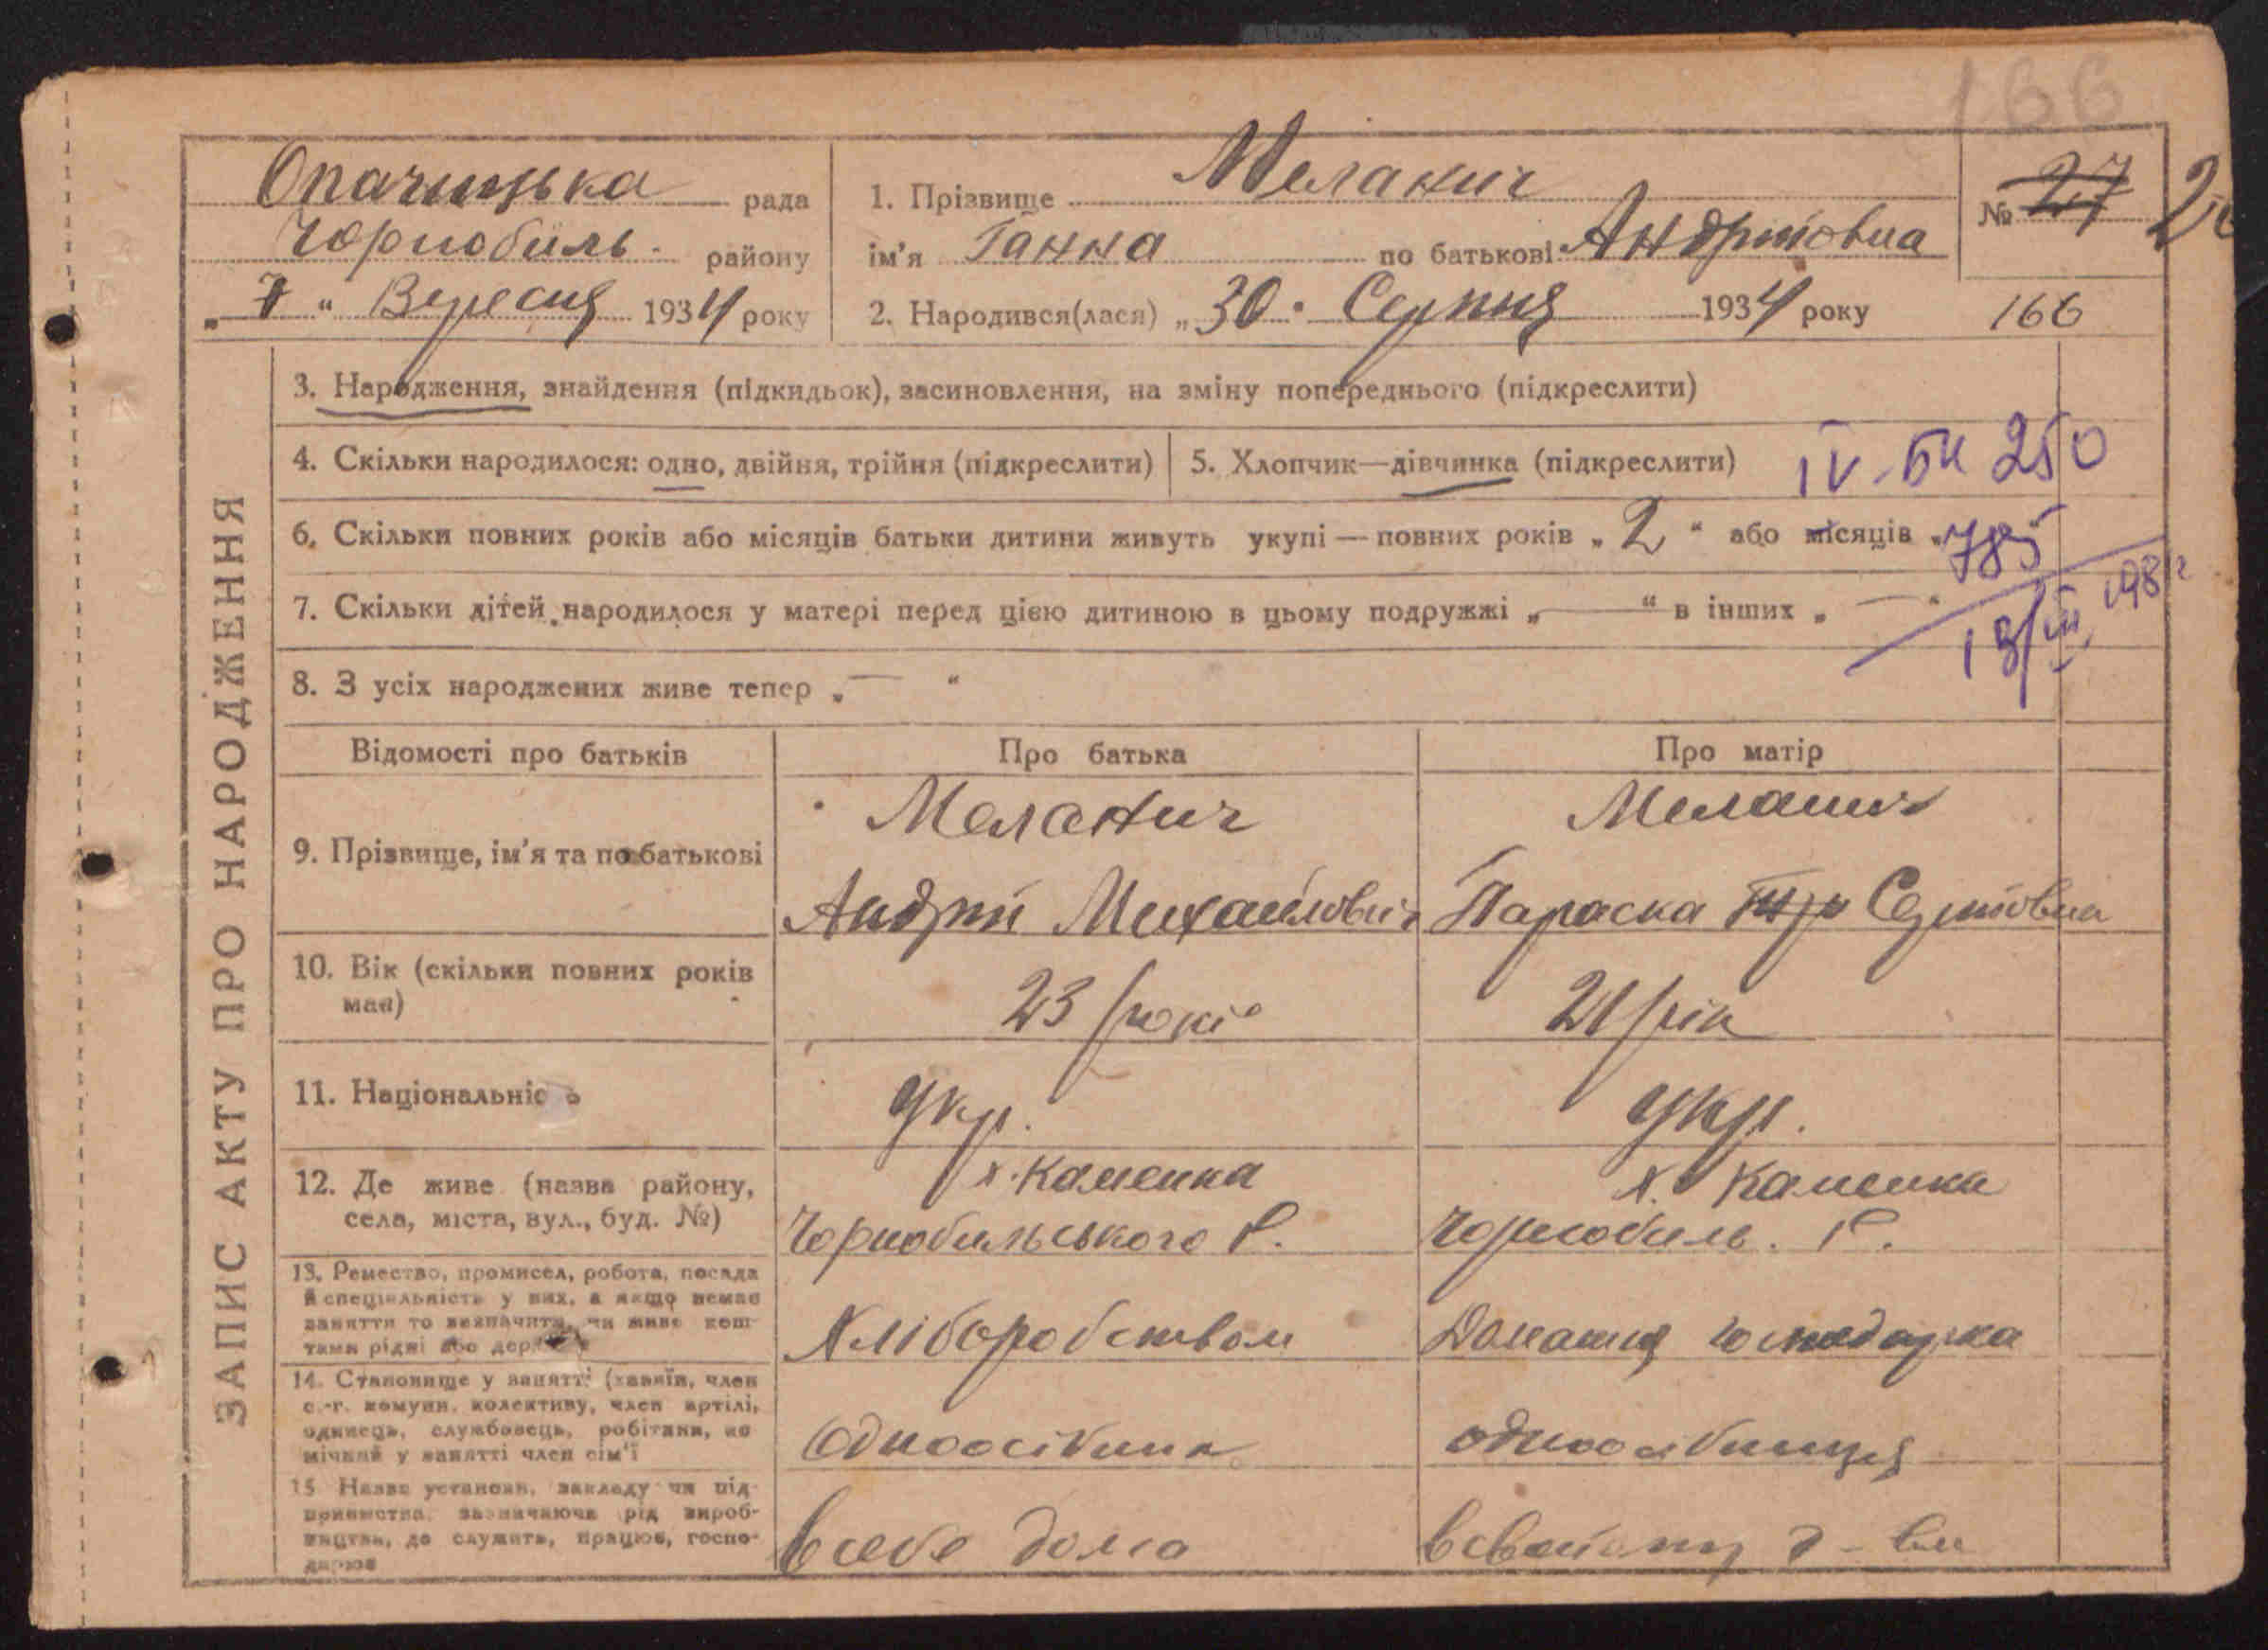 166
Опачицька рада
Чорнобиль. району
„ 7 “ Вересня 1934 року
1. Прізвище Меланич
ім’я Ганна по батькові Андріївна
2. Народився(лася) „ 30 “ Серпня 1934 року
№ 27
166
ЗАПИС АКТУ ПРО НАРОДЖЕННЯ
3. Народження, знайдення (підкидьок), засиновлення, на зміну попереднього (підкреслити)
4. Скільки народилося: одно, двійня, трійня (підкреслити)
5. Хлопчик—дівчинка (підкреслити)
IV-БК 250
6. Скільки повних років або місяців батьки дитини живуть укупі — повних років „ 2 “ або місяців „
785
7. Скільки дітей народилося у матері перед цією дитиною в цьому подружжі „ — “ в інших „ — “
8. З усіх народжених живе тепер „ — “
Відомості про батьків Про батька Про матір
9. Прізвище, ім’я та по батькові
Меланич
Андрій Михайлович
Меланич
Параска
10. Вік (скільки повних років має)
23 роки
21 рік
11. Національніс ь
укр.
укр.
12. Де живе (назва району,
села, міста, вул., буд. №)
х. Каменка
Чорнобильського Р.
х. Каменка
Чорнобиль. Р.
13. Ремество, промисел, робота, посада
й спеціяльність у них, а якщо немає
заняття то визначити, чи живе кош-
тами рідні або дер
Хліборобством
Домашня господарка
14. Становище у занятті (хазяїн, член
с.-г. комуни, колективу, член артілі,
одинець, службовець, робітник, по
мічний у занятті член сім’ї
Одноосібник
одноосібниця
15 Назва установи, закладу чи під-
приємства, зазначаючи рід вироб-
ництва, де служить, працює, госпо-
дарює
в себе дома